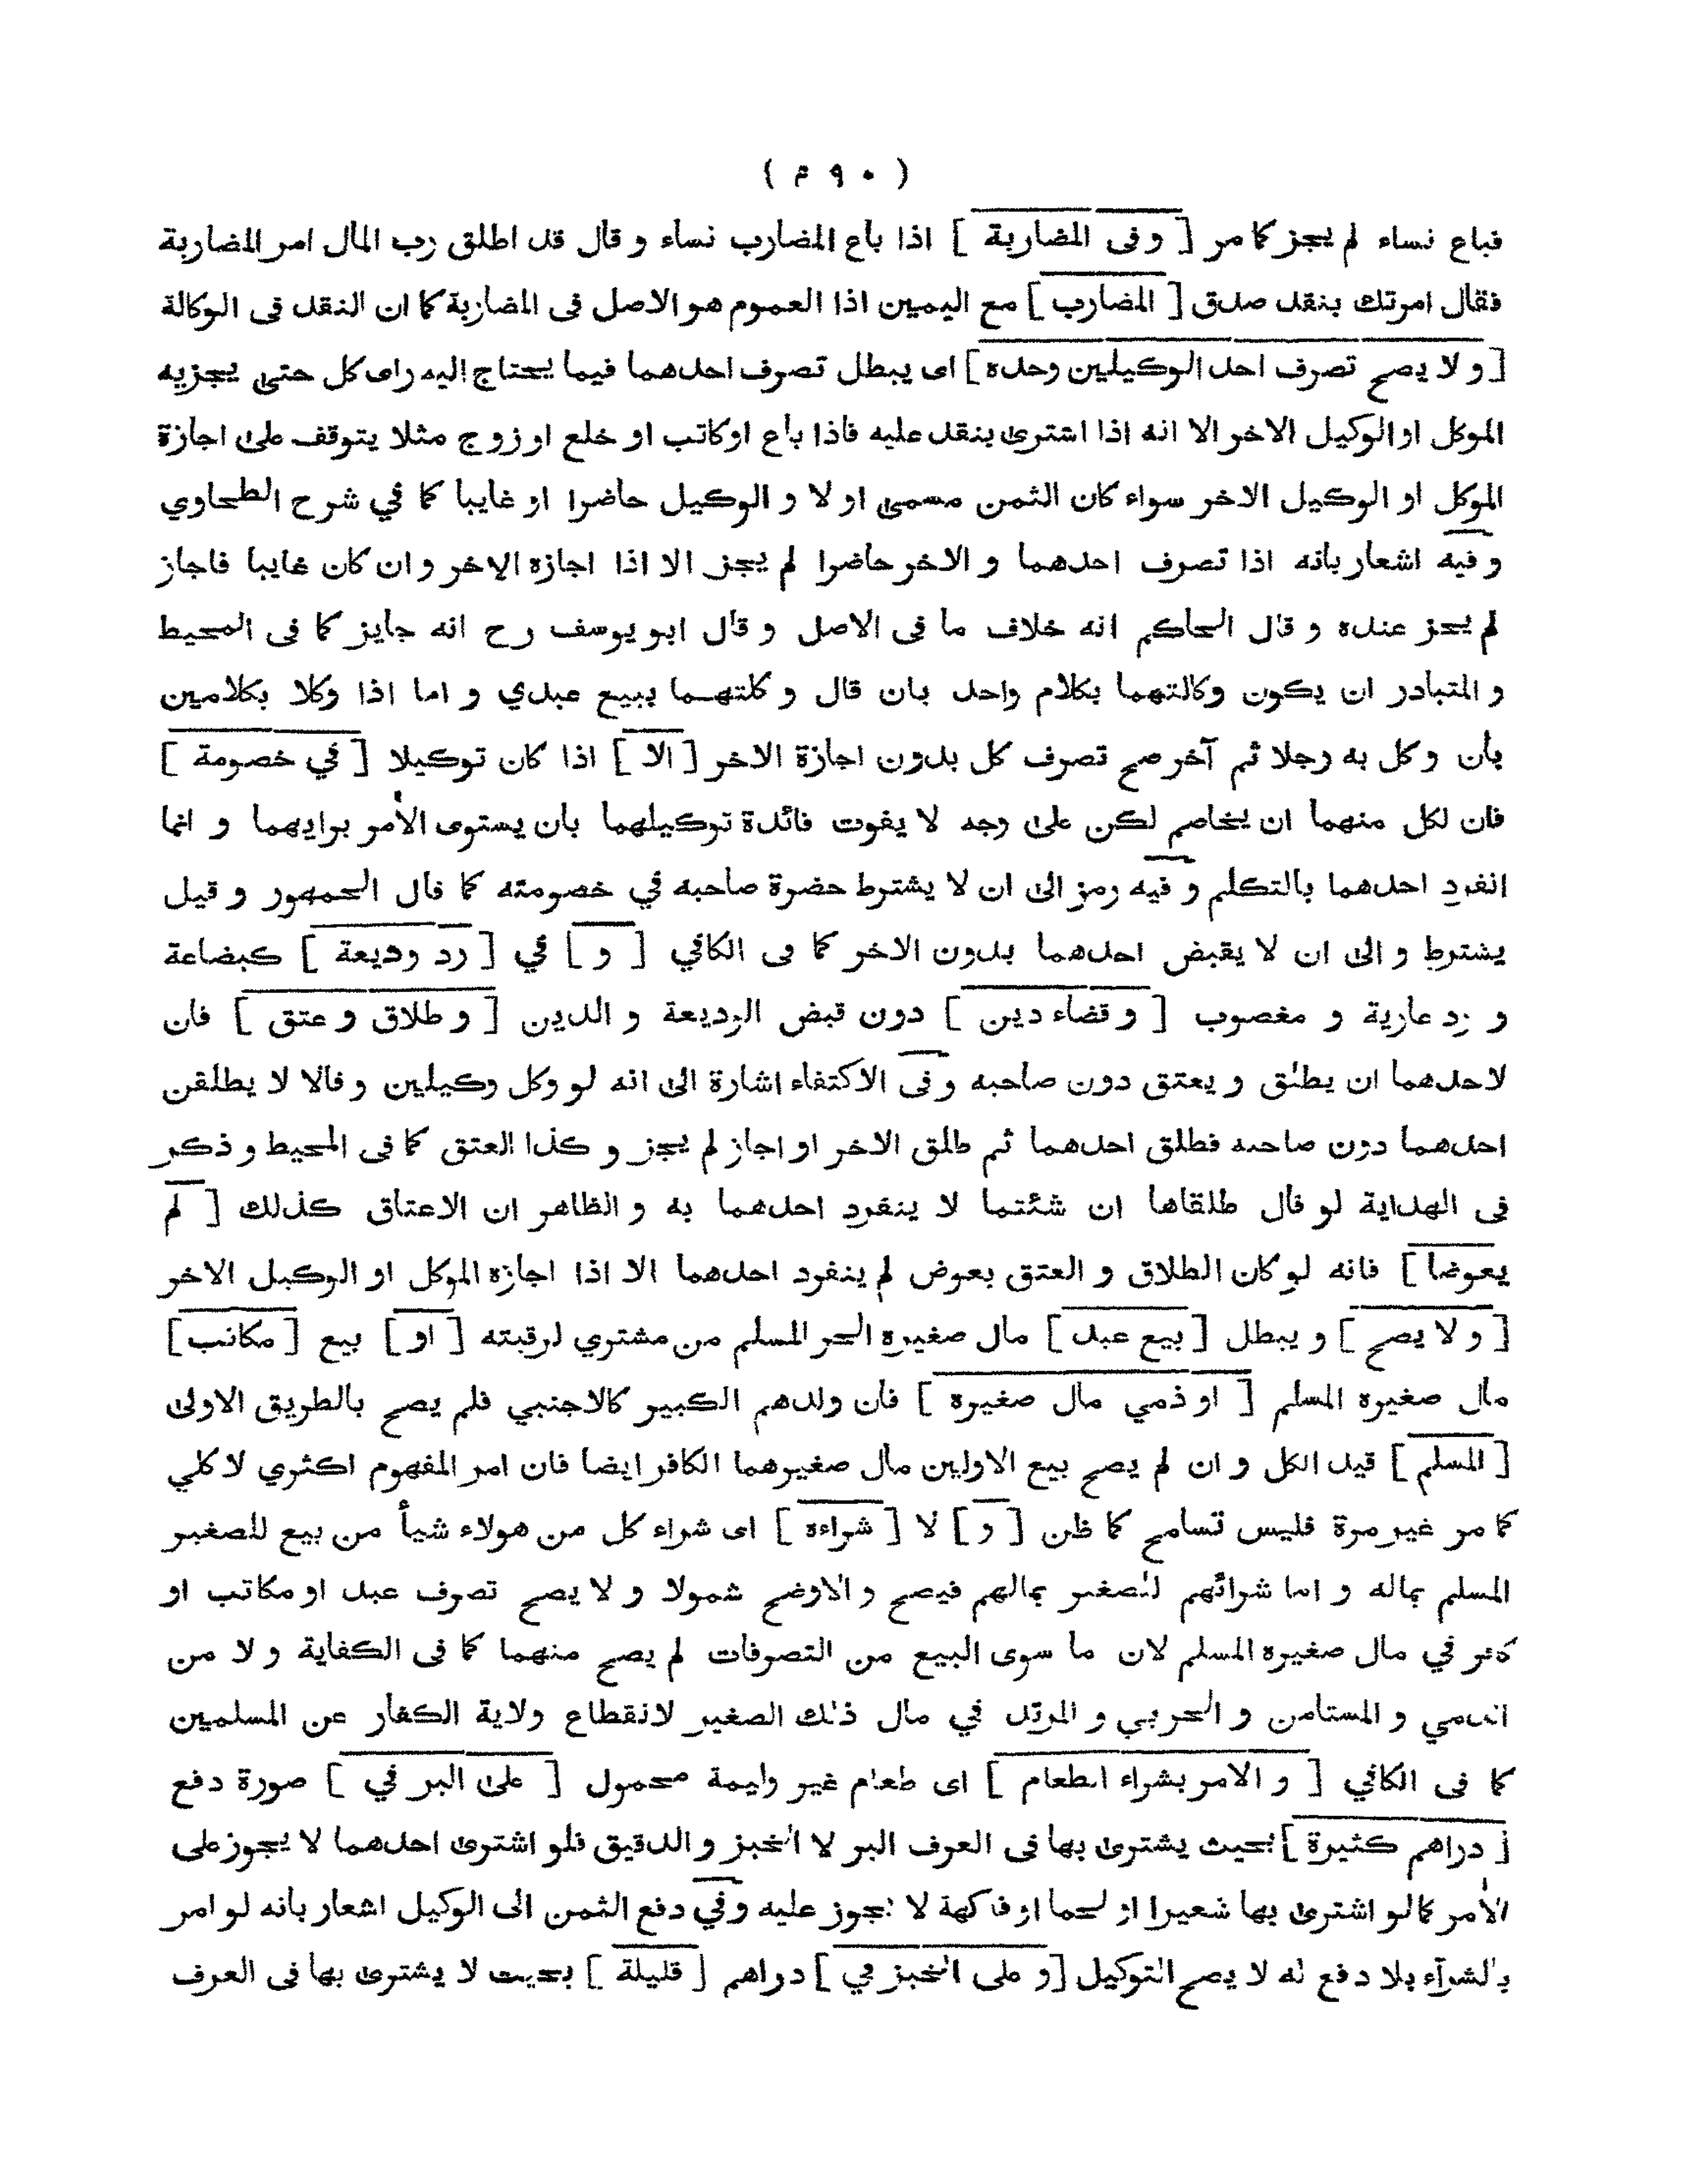 ( ۴۹۰ )
فباع نساء لم يجز كما مر [ وفى المضاربة ] اذا باع المضارب نساء و قال قد اطلق رب المال امر المضاربة
فقال امرتك بنقد صدق [ المضارب ] مع اليمين اذا العموم هو الاصل فى المضاربة كما ان النقد فى الوكالة
[ و لا يصح تصرف احد الوكيلين وحده ] اى يبطل تصرف احدهما فيما يحتاج اليه راى كل حتى يجزيه
الموكل او الوكيل الاخر الا انه اذا اشترى بنقد عليه فاذا باع او كاتب او خلع او زوج مثلا يتوقف على اجازة
الموكل او الوكيل الاخر سواء كان الثمن مسمى او لا و الوكيل حاضرا او غايبا كما في شرح الطحاوي
و فيه اشعار بانه اذا تصرف احدهما و الاخر حاضرا لم يجز الا اذا اجازه الاخر و ان كان غايبا فاجاز
لم يجز عنده و قال الحاكم انه خلاف ما فى الاصل و قال ابو يوسف رح انه جايز كما فى المحيط
و المتبادر ان يكون وكالتهما بكلام واحد بان قال و كلتهما ببيع عبدي و اما اذا وكلا بكلامين
بان وكل به رجلا ثم آخر صح تصرف كل بدون اجازة الاخر [ الا ] اذا كان توكيلا [ في خصومة ]
فان لكل منهما ان يخاصم لكن على وجه لا يفوت فائدة توكيلهما بان يستوى الأمر برايهما و انما
انفرد احدهما بالتكلم و فيه رمز الى ان لا يشترط حضرة صاحبه في خصومته كما قال الجمهور و قيل
يشترط و الى ان لا يقبض احدهما بدون الاخر كما فى الكافي [ و ] في [ رد وديعة ] كبضاعة
و رد عارية و مغصوب [ و قضاء دين ] دون قبض الوديعة و الدين [ و طلاق و عتق ] فان
لاحدهما ان يطلق و يعتق دون صاحبه و فى الاكتفاء اشارة الى انه لو وكل وكيلين و قالا لا يطلقن
احدهما دون صاحبه فطلق احدهما ثم طلق الاخر او اجاز لم يجز و كذا العتق كما فى المحيط و ذكر
فى الهداية لو قال طلقاها ان شئتما لا ينفرد احدهما به و الظاهر ان الاعتاق كذلك [ لم
يعوضا ] فانه لو كان الطلاق و العتق بعوض لم ينفرد احدهما الا اذا اجازه الموكل او الوكيل الاخر
[ و لا يصح ] و يبطل [ بيع عبد ] مال صغيره الحر المسلم من مشتري لرقبته [ او ] بيع [ مكاتب ]
مال صغيره المسلم [ او ذمي مال صغيره ] فان ولدهم الكبير كالاجنبي فلم يصح بالطريق الاولى
[ المسلم ] قيد الكل و ان لم يصح بيع الاولين مال صغيرهما الكافر ايضا فان امر المفهوم اكثري لا كلي
كما مر غير مرة فليس تسامح كما ظن [ و ] لا [ شراءه ] اى شراء كل من هولاء شيأ من بيع للصغير
المسلم بماله و اما شرائهم للصغير بمالهم فيصح و الاوضح شمولا و لا يصح تصرف عبد او مكاتب او
كافر في مال صغيره المسلم لان ما سوى البيع من التصرفات لم يصح منهما كما فى الكفاية و لا من
الذمي و المستامن و الحربي و المرتد في مال ذلك الصغير لانقطاع ولاية الكفار عن المسلمين
كما فى الكافي [ و الامر بشراء الطعام ] اى طعام غير وليمة محمول [ على البر في ] صورة دفع
[ دراهم كثيرة ] بحيث يشترى بها فى العرف البر لا الخبز و الدقيق فلو اشترى احدهما لا يجوز على
الأمر كما لو اشترى بها شعيرا او لحما او فاكهة لا يجوز عليه و في دفع الثمن الى الوكيل اشعار بانه لو امر
بالشرآء بلا دفع له لا يصح التوكيل [ و على الخبز في ] دراهم [ قليلة ] بحيث لا يشترى بها فى العرف